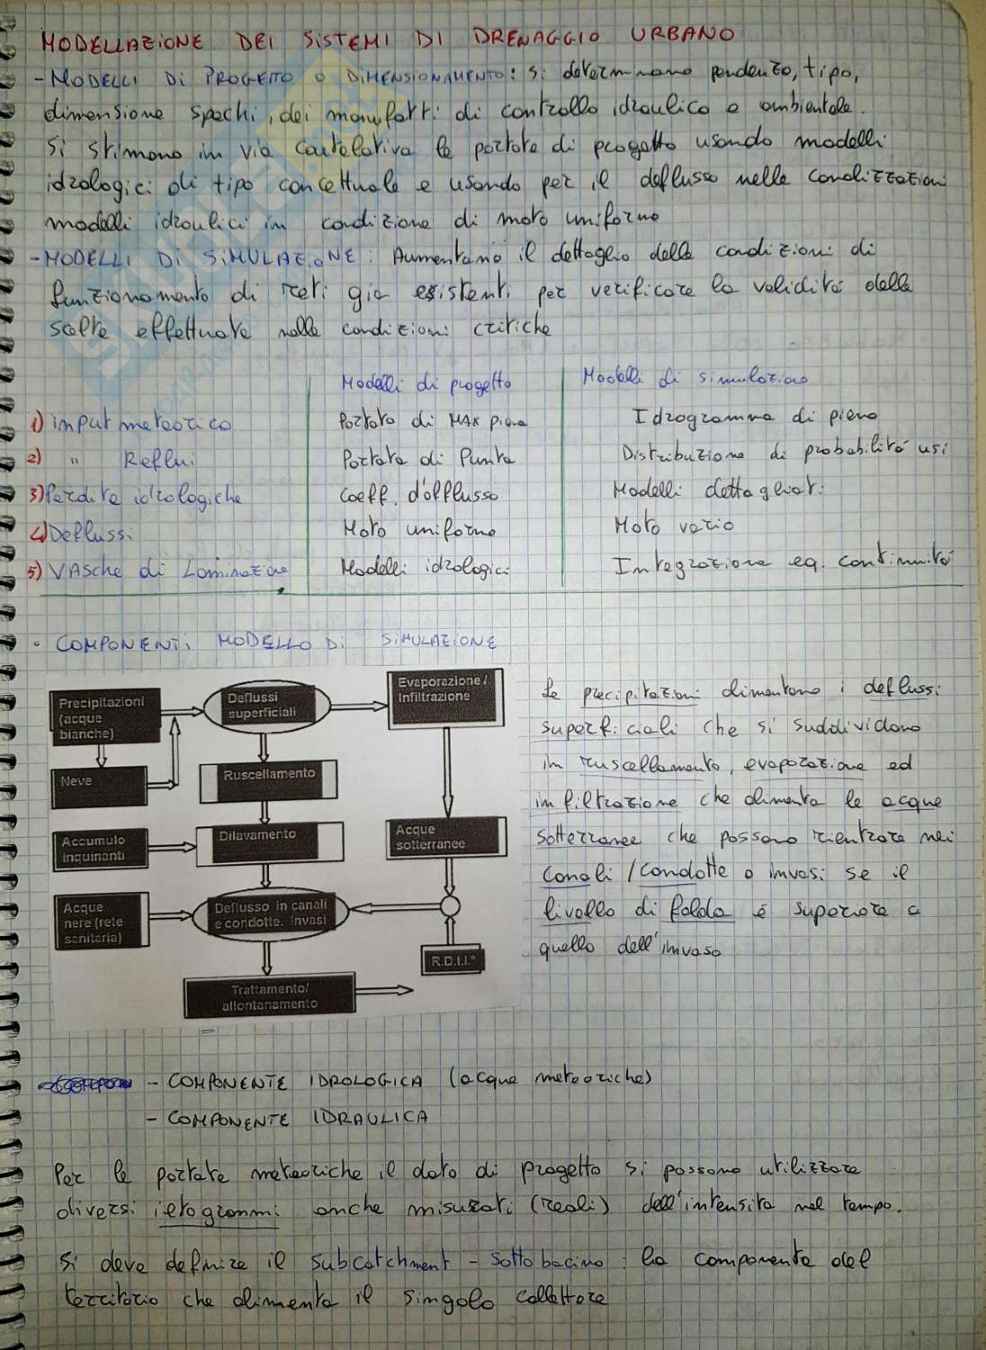 MODELLAZIONE DEI SISTEMI DI DRENAGGIO URBANO
- MODELLI DI PROGETTO O DIMENSIONAMENTO: si determinano pendenza, tipo,
dimensione spechi, dei manufatti di controllo idraulico e ambientale.
Si stimano in via cautelativa le portate di progetto usando modelli
idrologici di tipo concettuale e usando per il deflusso nelle canalizzazioni
modelli idraulici in condizione di moto uniforme
- MODELLI DI SIMULAZIONE: Aumentano il dettaglio delle condizioni di
funzionamento di reti gia esistenti per verificare la validità delle
scelte effettuate nelle condizioni critiche
Modelli di progetto Modelli di simulazione
1) input meteorico Portata di MAX piena Idrogramma di piena
2) " Reflui Portata di Punta Distribuzione di probabilità usi
3) Perdite idrologiche Coeff. d'afflusso Modelli dettagliati
4) Deflussi Moto uniforme Moto vario
5) VAsche di Laminazione Modelli idrologici Integrazione eq. continuità
• COMPONENTI MODELLO DI SIMULAZIONE
Precipitazioni
(acque
bianche)
Deflussi
superficiali
Evaporazione /
Infiltrazione
Neve
Ruscellamento
Accumulo
inquinanti
Dilavamento
Acque
sotterranee
Acque
nere (rete
sanitaria)
Deflusso in canali
e condotte. Invasi
R.D.I.I.*
Trattamento/
allontanamento
Le precipitazioni alimentano i deflussi
superficiali che si suddividono
in ruscellamento, evaporazione ed
infiltrazione che alimenta le acque
sotterranee che possono rientrare nei
canali / condotte o invasi se il
livello di falda è superiore a
quello dell'invaso
- COMPONENTE IDROLOGICA (acque meteoriche)
- COMPONENTE IDRAULICA
Per le portate meteoriche il dato di progetto si possono utilizzare
diversi ietogrammi anche misurati (reali) dell'intensità nel tempo.
Si deve definire il subcatchment - sottobacino: la componente del
territorio che alimenta il singolo collettore